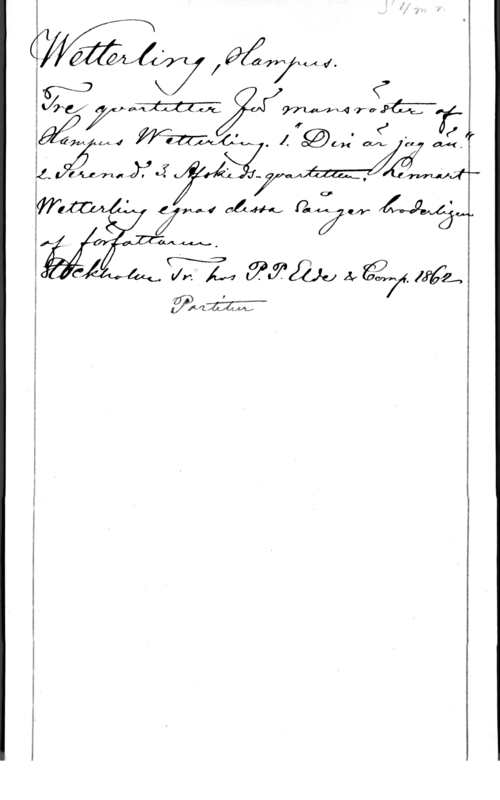 S/4 m r
Wetterling, Hampus.
Tre qvartetter för mansröster af
Hampus Wetterling. 1. "Din är jag än."
2. Serenad. 3. Afskeds-qvartetten. Lennart
Wetterling egnas dessa sånger broderligen
af författaren.
Stockholm Tr. hos P.P. Elde & Comp. 1862
Partitur